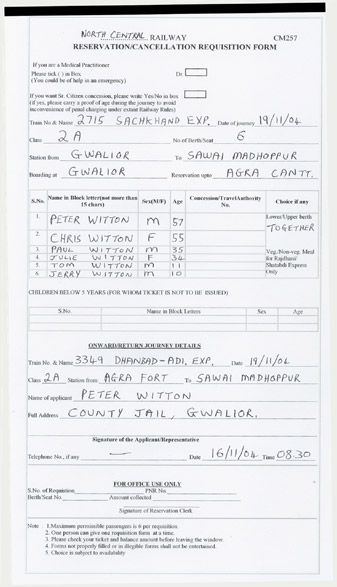 NORTH CENTRAL RAILWAY CM257
RESERVATION/CANCELLATION REQUISITION FORM
If you are a Medical Practitioner
Please tick ( ) in Box Dr.
(You could be of help in an emergency)
If you want Sr. Citizen concession, please write Yes/No in box
(if yes, please carry a proof of age during the journey to avoid
inconvenience of penal charging under extant Railway Rules)
Train No & Name 2715 SACHKHAND EXP. Date of journey 19/11/04
Class 2A No of Berth/Seat 6
Station from GWALIOR To SAWAI MADHOPPUR
Boarding at GWALIOR Reservation upto AGRA CANTT.
S.No. Name in Block letter(not more than 15 chars) Sex(M/F) Age Concession/Travel/Authority No. Choice if any
1. PETER WITTON M 57 Lower/Upper berth TOGETHER
2. CHRIS WITTON F 55
3. PAUL WITTON M 35 Veg./Non-veg. Meal
4. JULIE WITTON F 34 for Rajdhani/
5. TOM WITTON M 11 Shatabdi Express
6. JERRY WITTON M 10 Only
CHILDREN BELOW 5 YEARS (FOR WHOM TICKET IS NOT TO BE ISSUED)
S.No. Name in Block Letters Sex Age
ONWARD/RETURN JOURNEY DETAILS
Train No. & Name 3349 DHANBAD-ADI, EXP. Date 19/11/04
Class 2A Station from AGRA FORT To SAWAI MADHOPPUR
Name of applicant PETER WITTON
Full Address COUNTY JAIL, GWALIOR.
Signature of the Applicant/Representative
Telephone No., if any — Date 16/11/04 Time 08.30
FOR OFFICE USE ONLY
S.No. of Requisition PNR No
Berth/Seat No. Amount collected
Signature of Reservation Clerk
Note : 1.Maximum permissible passengers is 6 per requisition.
2. One person can give one requisition form at a time.
3. Please check your ticket and balance amount before leaving the window.
4. Forms not properly filled or in illegible forms shall not be entertained.
5. Choice is subject to availability